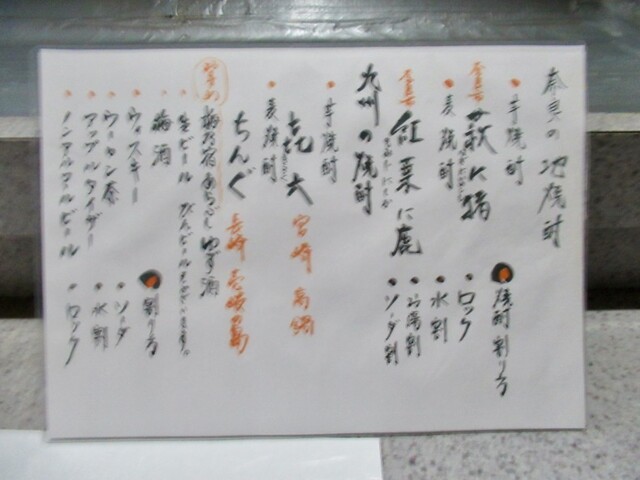 奈良の地焼酎
・芋焼酎
奈良 萩に猪
・麦焼酎
奈良 紅葉に鹿
もみじにしか
●焼酎割り方
・ロック
・水割
・お湯割
・ソーダ割
九州の焼酎
・芋焼酎
㐂六 宮崎 高鍋
・麦焼酎
ちんぐ 長崎 壱岐島
梅乃宿 あらごし ゆず酒
・生ビール びんビールもございます。
・梅酒
・ウィスキー
・ウーロン茶
・アップルタイザー
・ノンアルコールビール
●割り方
・ソーダ
・水割
・ロック